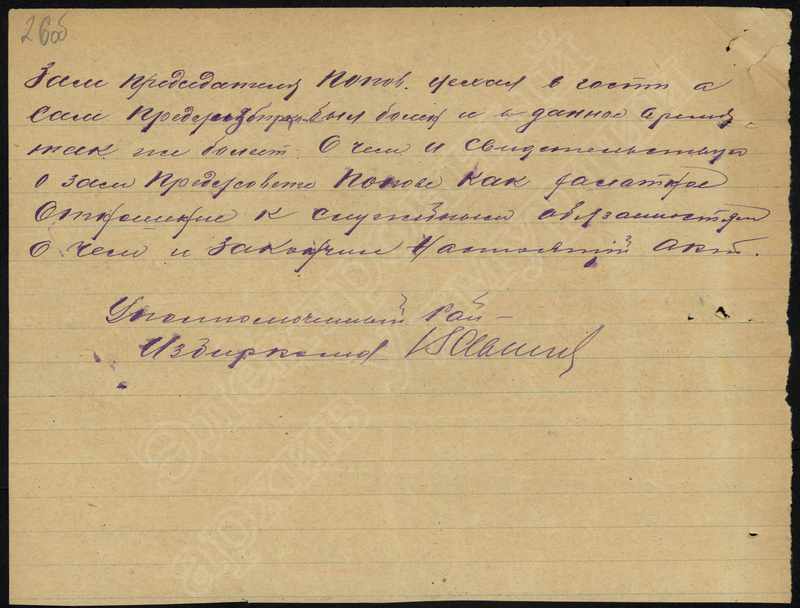 26об
Зам председателя Попов. уехал в гости а
сам был болен и в данное время
так же болеет. О чем и свидетельствую
о зам Предсовете Попове как халатное
Отношение к служебным обязаностям
О чем и закончил Настоящий акт.
Уполномоченный Рай-
Избиркома